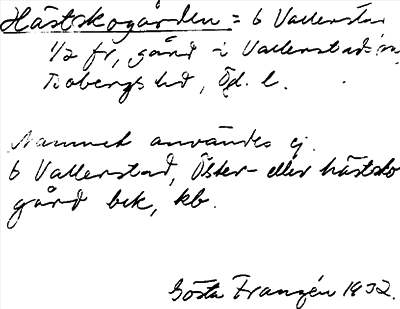 Hästskogården = 6 Vallerstad
1/2 fr, gård i Vallerstad sn,
Bobergs hd, Ög. l.
Namnet användes ej.
6 Vallerstad, Öster- eller hästsko
gård bek, kb.
Gösta Franzén 1932.